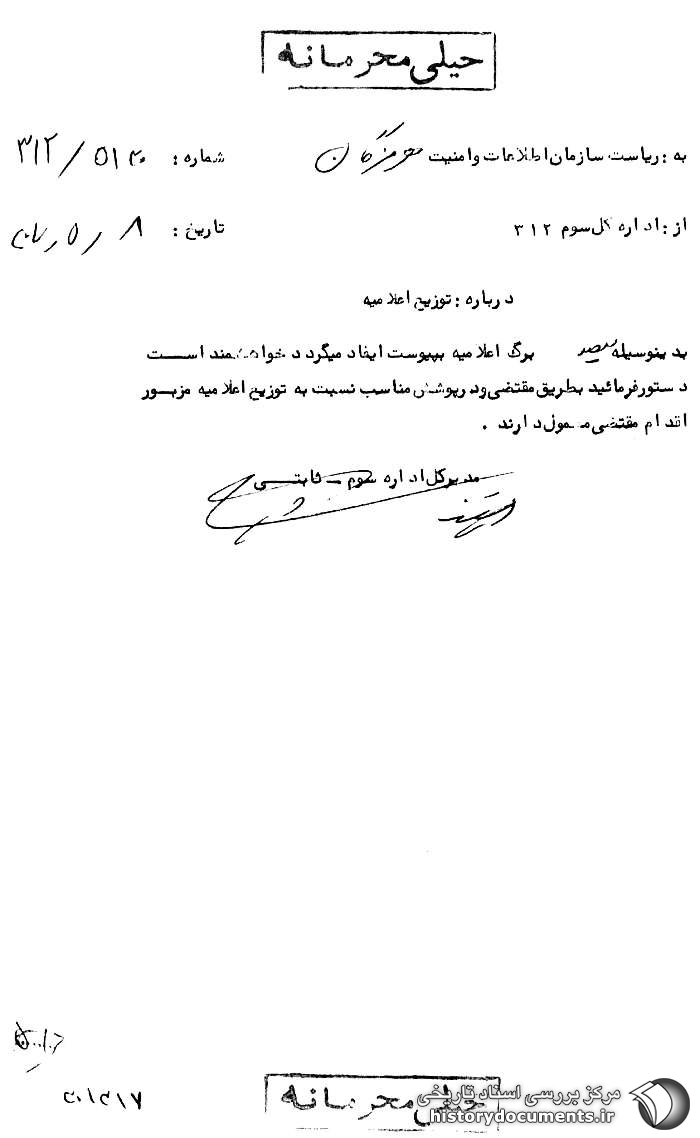 خیلی محرمانه
به : ریاست سازمان اطلاعات و امنیت هرمزگان شماره : ۳۱۲/۵۱۴۰
از : اداره کل سوم ۳۱۲ تاریخ :
درباره : توزیع اعلامیه
بدینوسیله سیصد برگ اعلامیه بپیوست ایفاد میگردد خواهشمند است
دستور فرمائید بطریق مقتضی و در پوشش مناسب نسبت به توزیع اعلامیه مزبور
اقدام مقتضی معمول دارند .
مدیرکل اداره سوم - ثابتی
خیلی محرمانه
مرکز بررسی اسناد تاریخی
historydocuments.ir